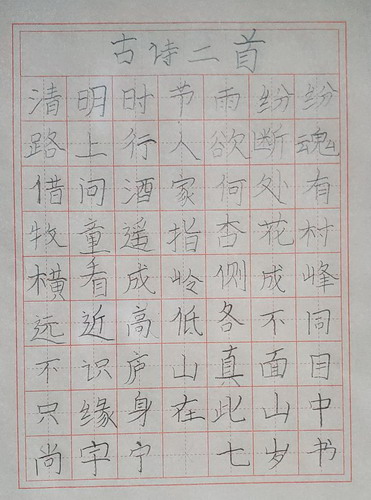 古诗二首
清明时节雨纷纷
路上行人欲断魂
借问酒家何处有
牧童遥指杏花村
横看成岭侧成峰
远近高低各不同
不识庐山真面目
只缘身在此山中
尚字宁 七岁书